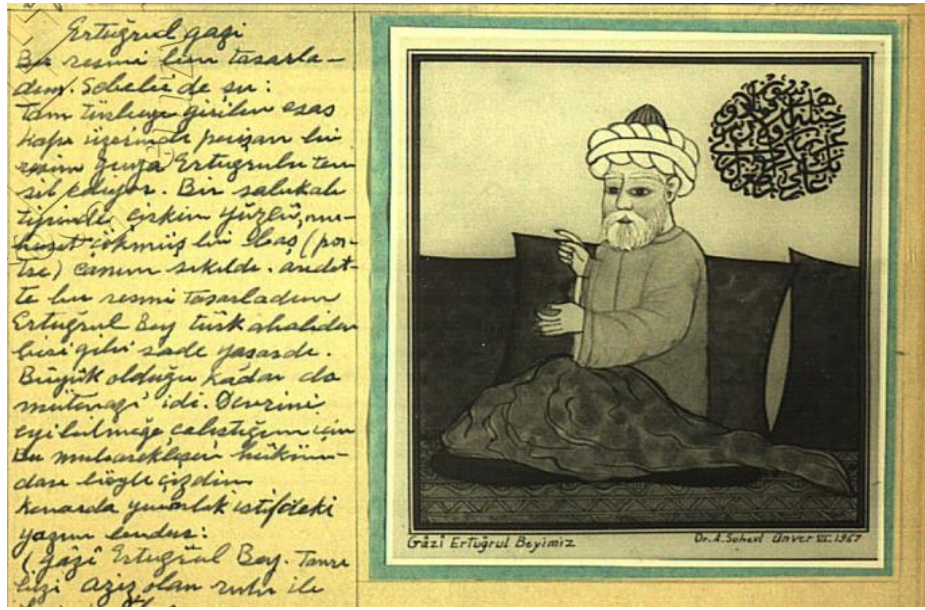 Ertuğrul gazi
Bu resmi ben tasarla-
dım. Sebebi de şu:
Tam türbeye girilen esas
kapı üzerinde perişan bir
resim güya Ertuğrulu tem
sil ediyor. Bir
tipinde çirkin yüzlü,
çökmüş bir baş (por-
tre) Canım sıkıldı.
te bu resmi tasarladım
Ertuğrul Bey türk ahaliden
birisi gibi sade yaşardı.
Büyük olduğu kadar da
mütevazi' idi. Devrini
eyi bilmeğe çalıştığım için
Bu hüküm-
darı böyle çizdim
Kenarda yuvarlak istifdeki
yazım budur:
(Gâzî Ertuğrul Bey. Tanrı
bizi aziz olan ruhu ile
Gâzî Ertuğrul Beyimiz
Dr. A. Süheyl Ünver 1967